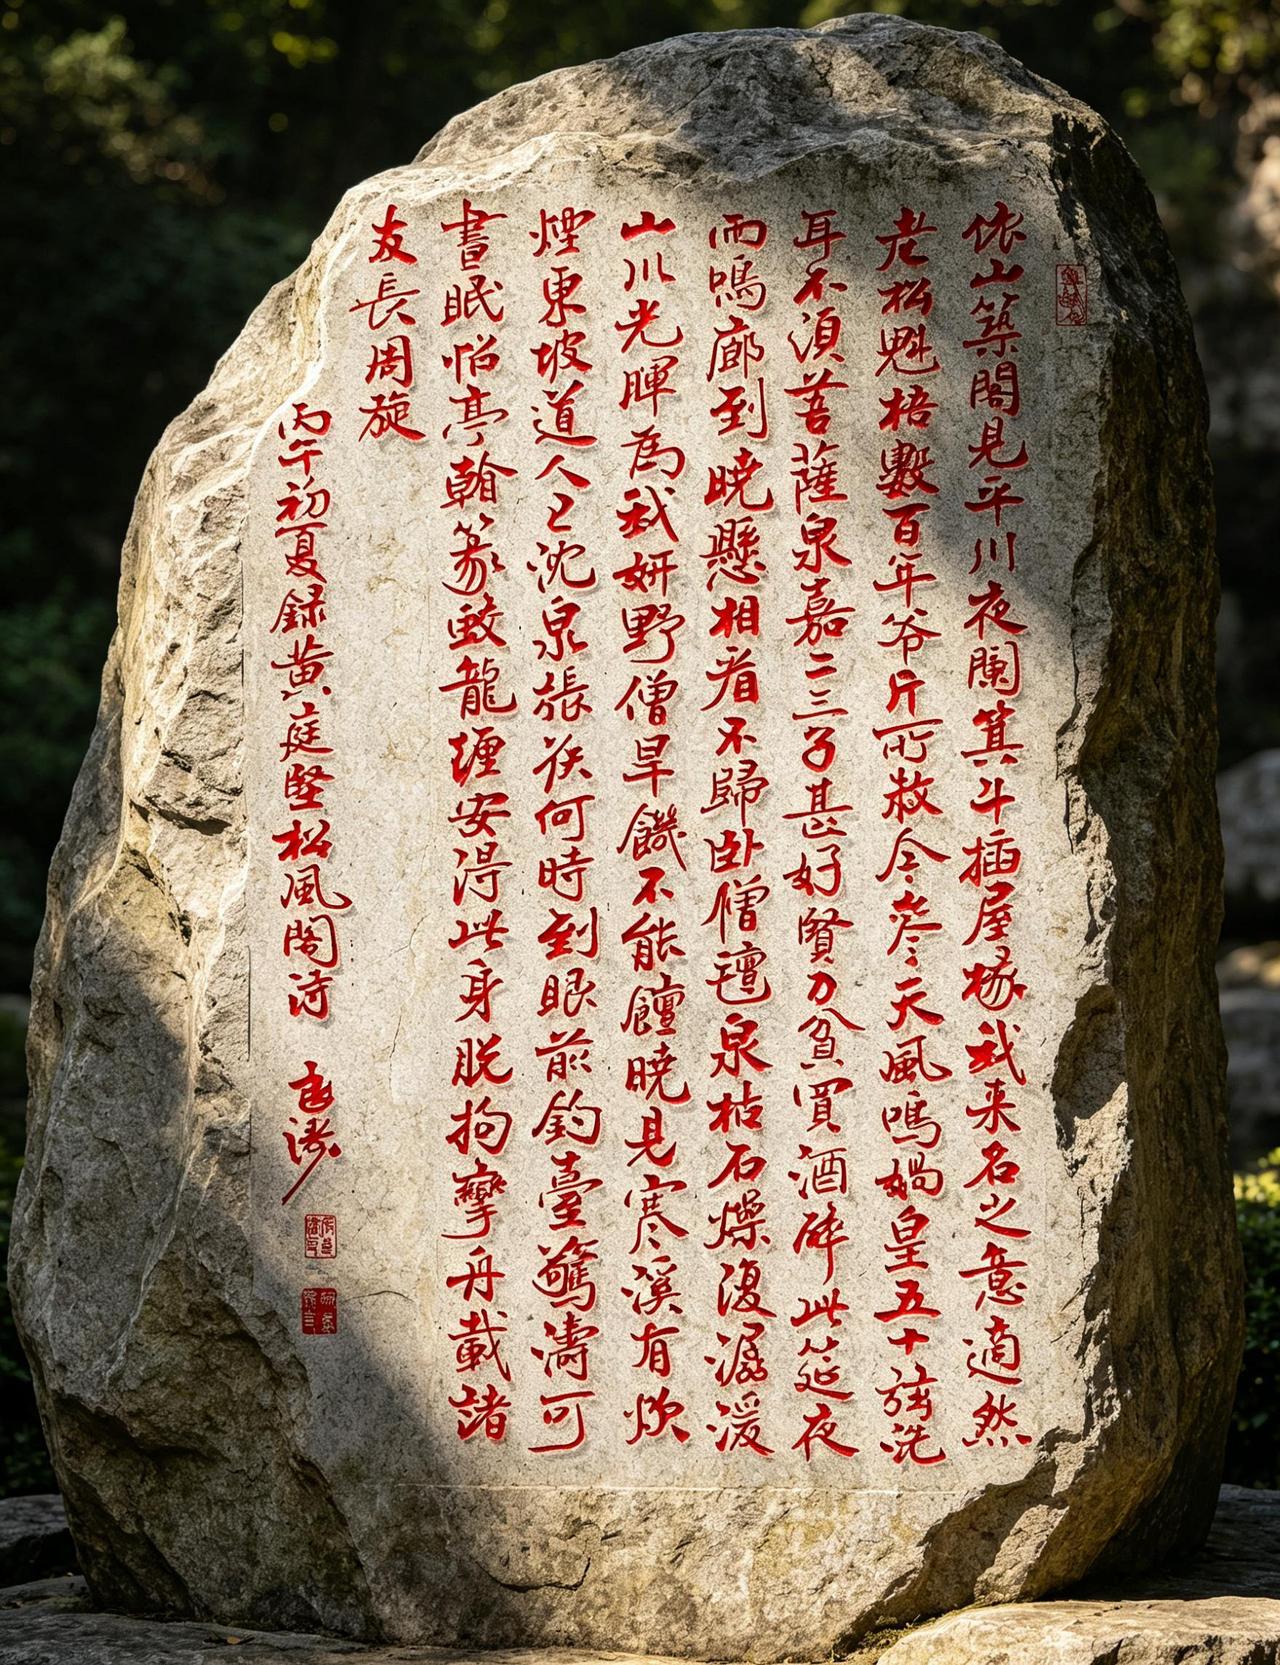 依山築閣見平川夜闌箕斗插屋椽我来名之意適然
老松魁梧數百年斧斤所赦今參天風鳴媧皇五十弦洗
耳不須菩薩泉嘉二三子甚好賢力貧買酒醉此筵夜
雨鳴廊到曉懸相看不歸臥僧氈泉枯石燥復潺湲
山川光暉為我妍野僧旱饑不能饘曉見寒溪有炊
煙東坡道人已沈泉張侯何時到眼前釣臺驚濤可
晝眠怡亭翰篆蛟龍纏安得此身脫拘攣舟載諸
友長周旋
丙午初夏録黄庭堅松風閣詩